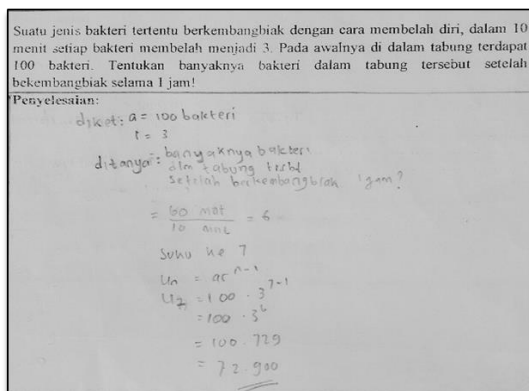 Suatu jenis bakteri tertentu berkembangbiak dengan cara membelah diri, dalam 10
menit setiap bakteri membelah menjadi 3. Pada awalnya di dalam tabung terdapat
100 bakteri. Tentukan banyaknya bakteri dalam tabung tersebut setelah
bekembangbiak selama 1 jam!
Penyelesaian:
diket: a = 100 bakteri
r = 3
ditanya: banyaknya bakteri
dlm tabung trsbt
setelah berkembangbiak 1 jam?
= 60 mnt / 10 mnt = 6
suku ke 7
Un = ar^n-1
U7 = 100 . 3^7-1
= 100 . 3^6
= 100 . 729
= 72.900